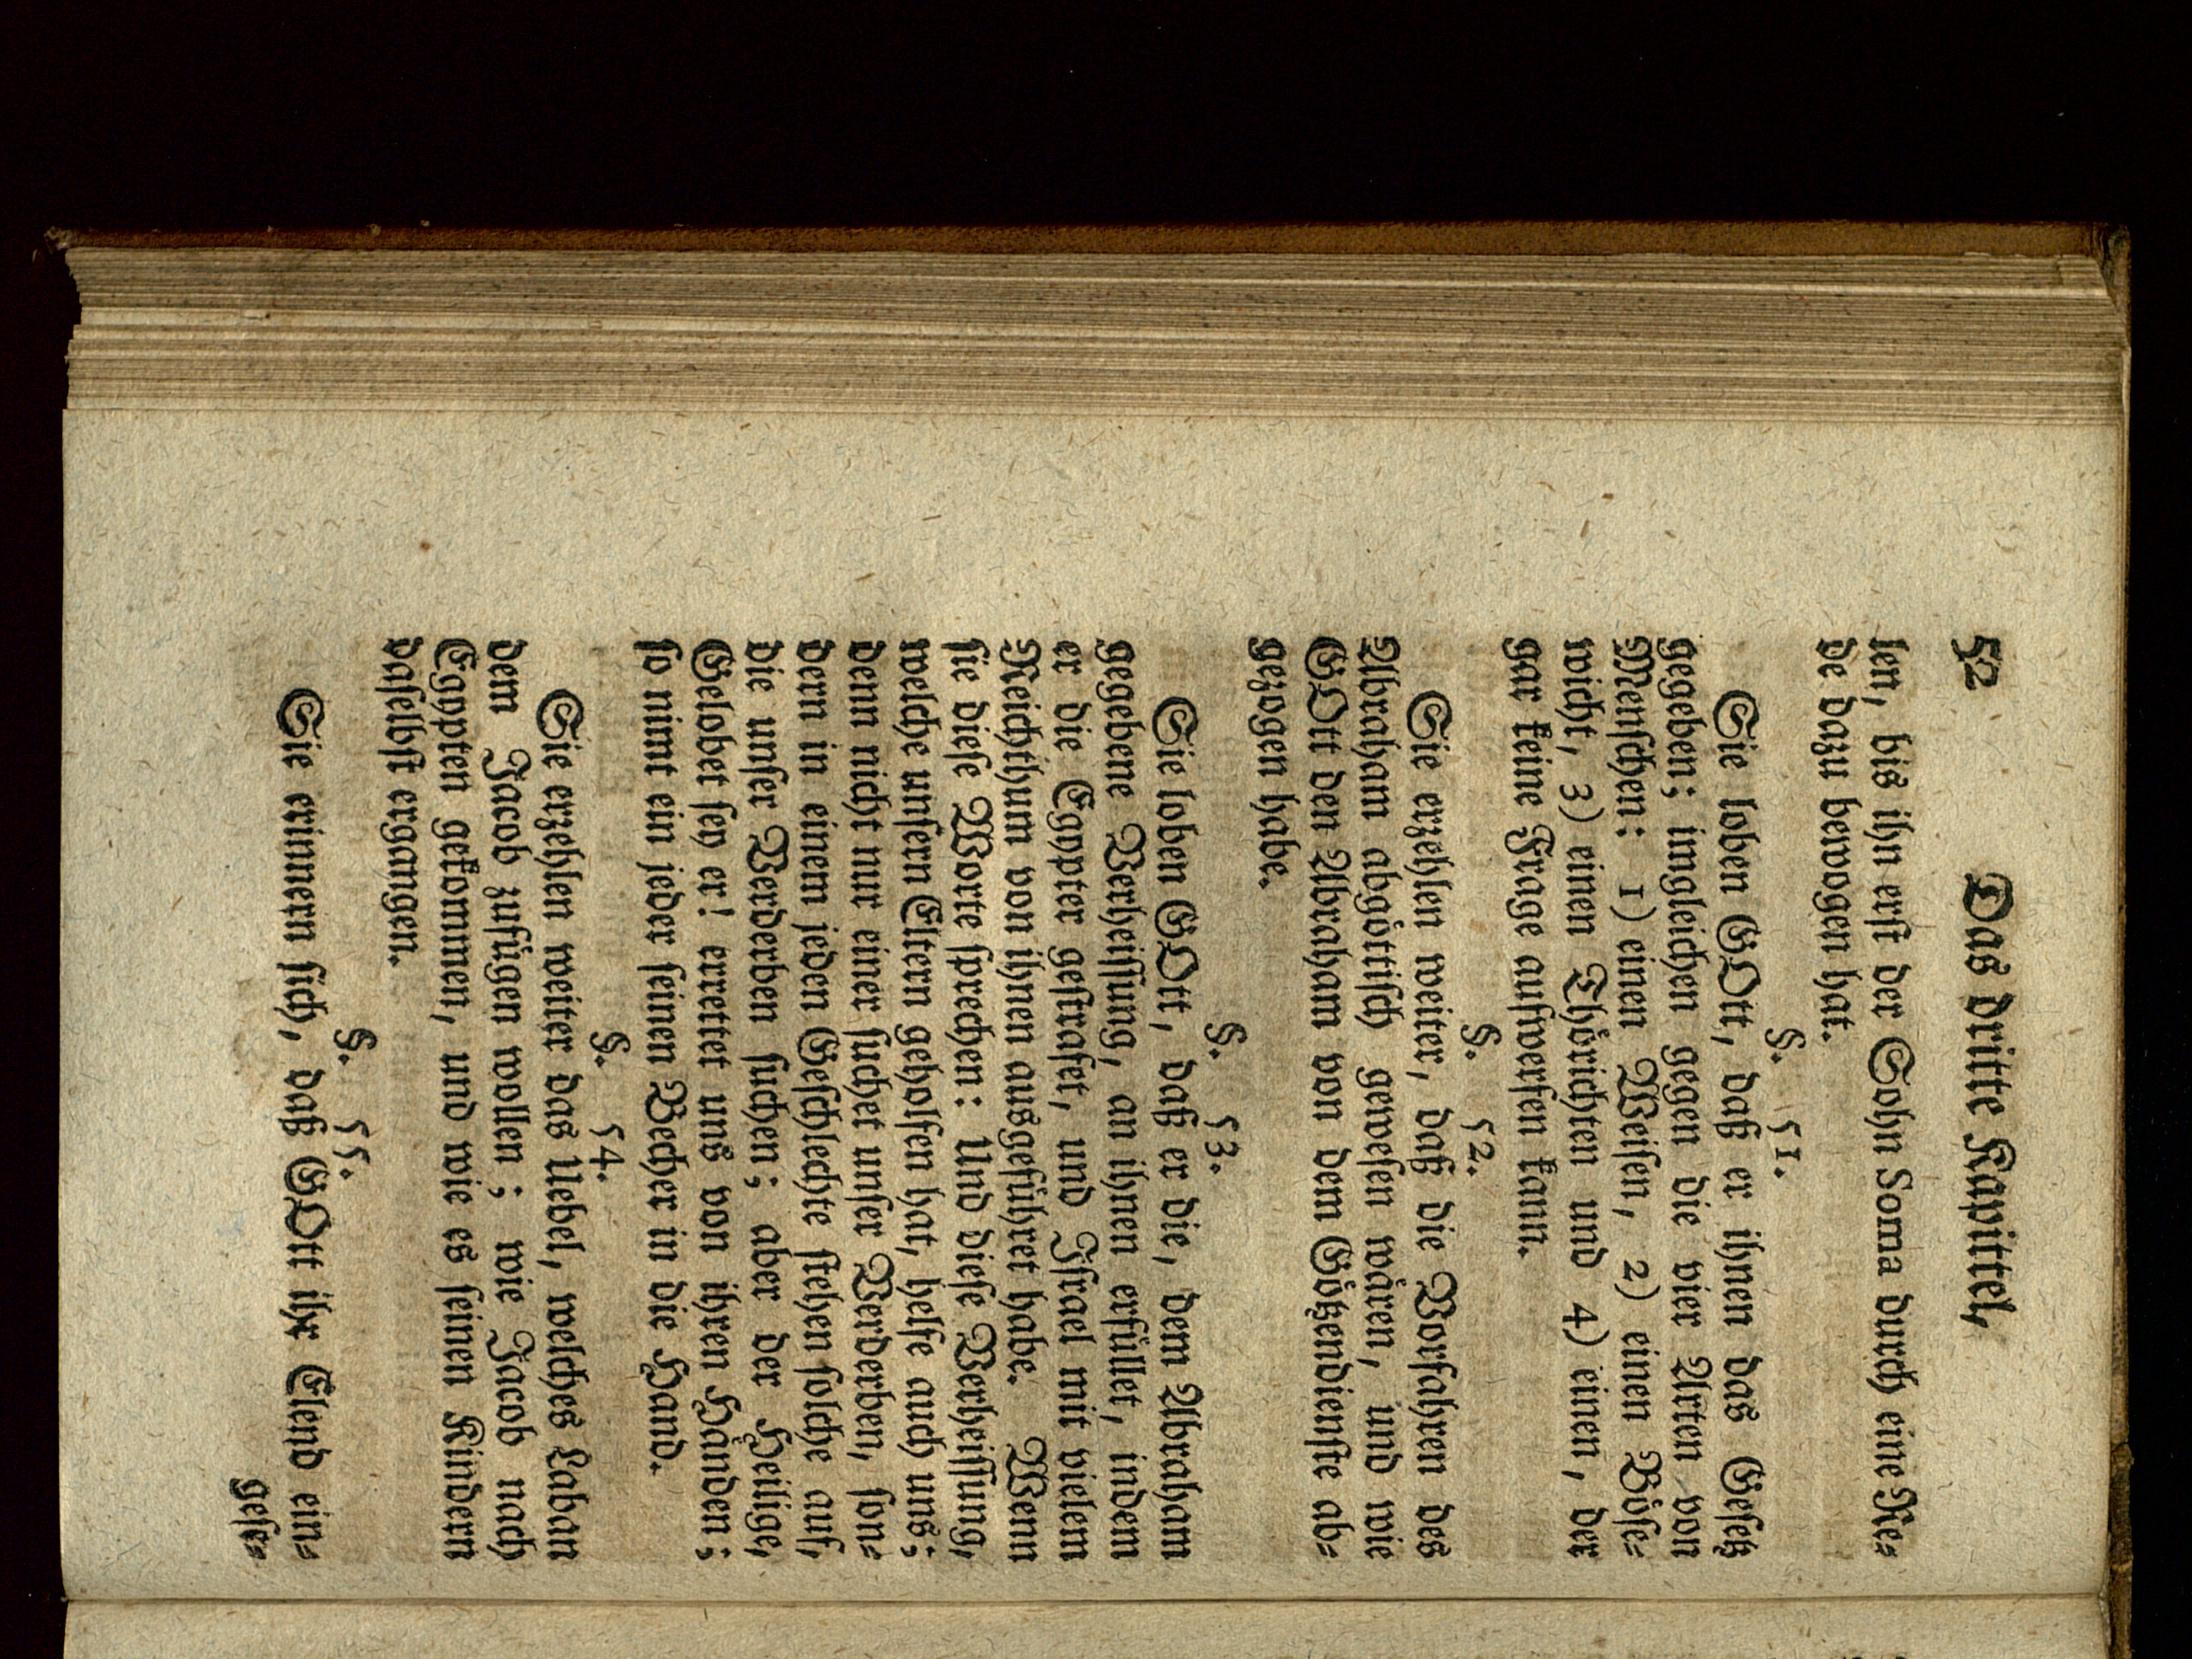 52 Das dritte Kapittel,
len, bis ihn erst der Sohn Soma durch eine Re-
de dazu bewogen hat.
§. 51.
Sie loben GOtt, daß er ihnen das Gesetz
gegeben; imgleichen gegen die vier Arten von
Menschen: 1) einen Weisen, 2) einen Böse-
wicht, 3) einen Thörichten und 4) einen, der
gar keine Frage aufwerfen kann.
§. 52.
Sie erzehlen weiter, daß die Vorfahren des
Abraham abgöttisch gewesen wären, und wie
GOtt den Abraham von dem Götzendienste ab-
gezogen habe.
§. 53.
Sie loben GOtt, daß er die, dem Abraham
gegebene Verheissung, an ihnen erfüllet, indem
er die Egypter gestrafet, und Israel mit vielem
Reichthum von ihnen ausgeführet habe. Wenn
sie diese Worte sprechen: Und diese Verheissung,
welche unsern Eltern geholfen hat, helfe auch uns;
denn nicht nur einer suchet unser Verderben, son-
dern in einem jeden Geschlechte stehen solche auf,
die unser Verderben suchen; aber der Heilige,
Gelobet sey er! errettet uns von ihren Händen;
so nimt ein jeder seinen Becher in die Hand.
§. 54.
Sie erzehlen weiter das Uebel, welches Laban
dem Jacob zufügen wollen; wie Jacob nach
Egypten gekommen, und wie es seinen Kindern
daselbst ergangen.
§. 55.
Sie erinnern sich, daß GOtt ihr Elend ein-
gese-